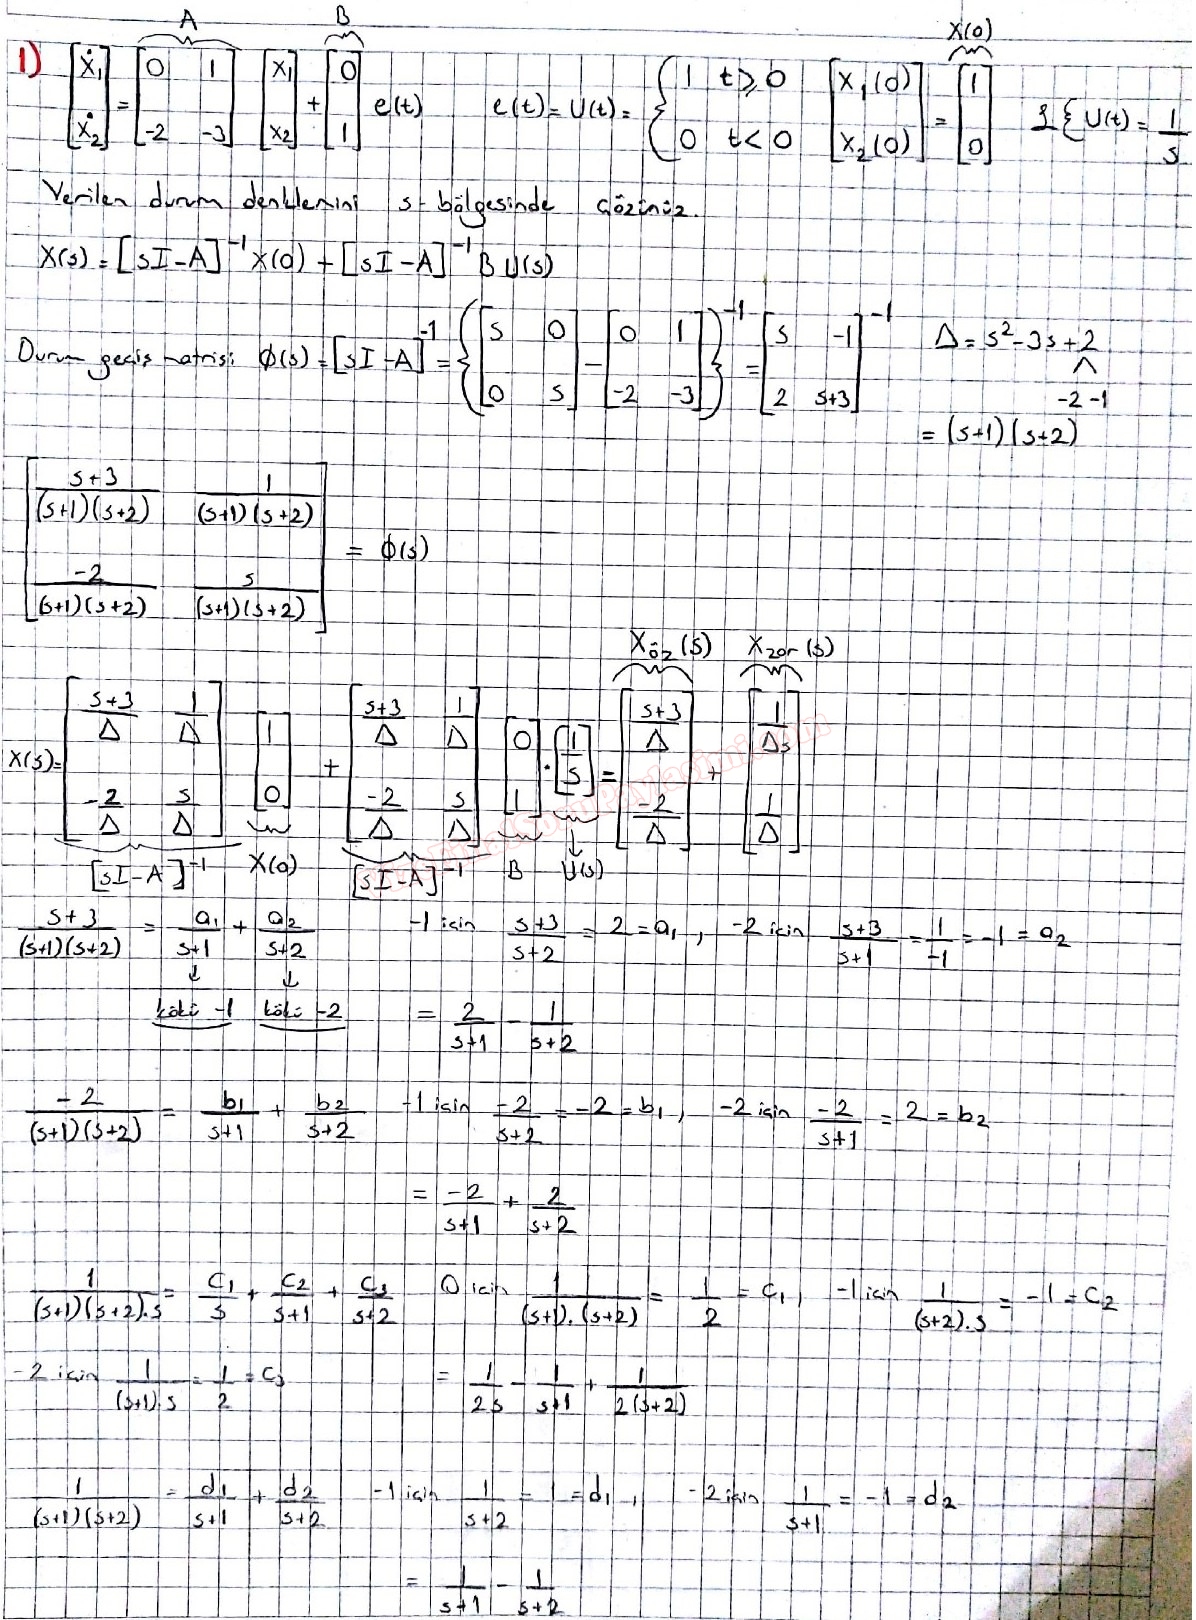 A B X(0)
1) [ẋ₁; ẋ₂] = [0 1; -2 -3] [x₁; x₂] + [0; 1] e(t)   e(t) = U(t) = { 1 t≥0; 0 t<0   [x₁(0); x₂(0)] = [1; 0]   ℒ{U(t) = 1/s
Verilen durum denklemini s-bölgesinde çözünüz.
X(s) = [sI-A]⁻¹ X(0) + [sI-A]⁻¹ B U(s)
Durum geçiş matrisi: φ(s) = [sI-A]⁻¹ = {[s 0; 0 s] - [0 1; -2 -3]}⁻¹ = [s -1; 2 s+3]⁻¹   Δ = s²-3s+2
-2 -1
= (s+1)(s+2)
[(s+3)/((s+1)(s+2)) 1/((s+1)(s+2)); -2/((s+1)(s+2)) s/((s+1)(s+2))] = φ(s)
Xöz(s) Xzor(s)
X(s) = [(s+3)/Δ 1/Δ; -2/Δ s/Δ] [1; 0] + [(s+3)/Δ 1/Δ; -2/Δ s/Δ] [0; 1] · [1/s] = [(s+3)/Δ; -2/Δ] + [1/Δs; 1/Δ]
[sI-A]⁻¹ X(0) [sI-A]⁻¹ B U(s)
(s+3)/((s+1)(s+2)) = a₁/(s+1) + a₂/(s+2)   -1 için (s+3)/(s+2) = 2 = a₁, -2 için (s+3)/(s+1) = 1/-1 = -1 = a₂
↓ ↓
kökü -1 kökü -2   = 2/(s+1) - 1/(s+2)
-2/((s+1)(s+2)) = b₁/(s+1) + b₂/(s+2)   -1 için -2/(s+2) = -2 = b₁, -2 için -2/(s+1) = 2 = b₂
= -2/(s+1) + 2/(s+2)
1/((s+1)(s+2).s) = c₁/s + c₂/(s+1) + c₃/(s+2)   0 için 1/((s+1).(s+2)) = 1/2 = c₁, -1 için 1/((s+2).s) = -1 = c₂
-2 için 1/((s+1).s) = 1/2 = c₃   = 1/2s - 1/(s+1) + 1/(2(s+2))
1/((s+1)(s+2)) = d₁/(s+1) + d₂/(s+2)   -1 için 1/(s+2) = 1 = d₁, -2 için 1/(s+1) = -1 = d₂
= 1/(s+1) - 1/(s+2)